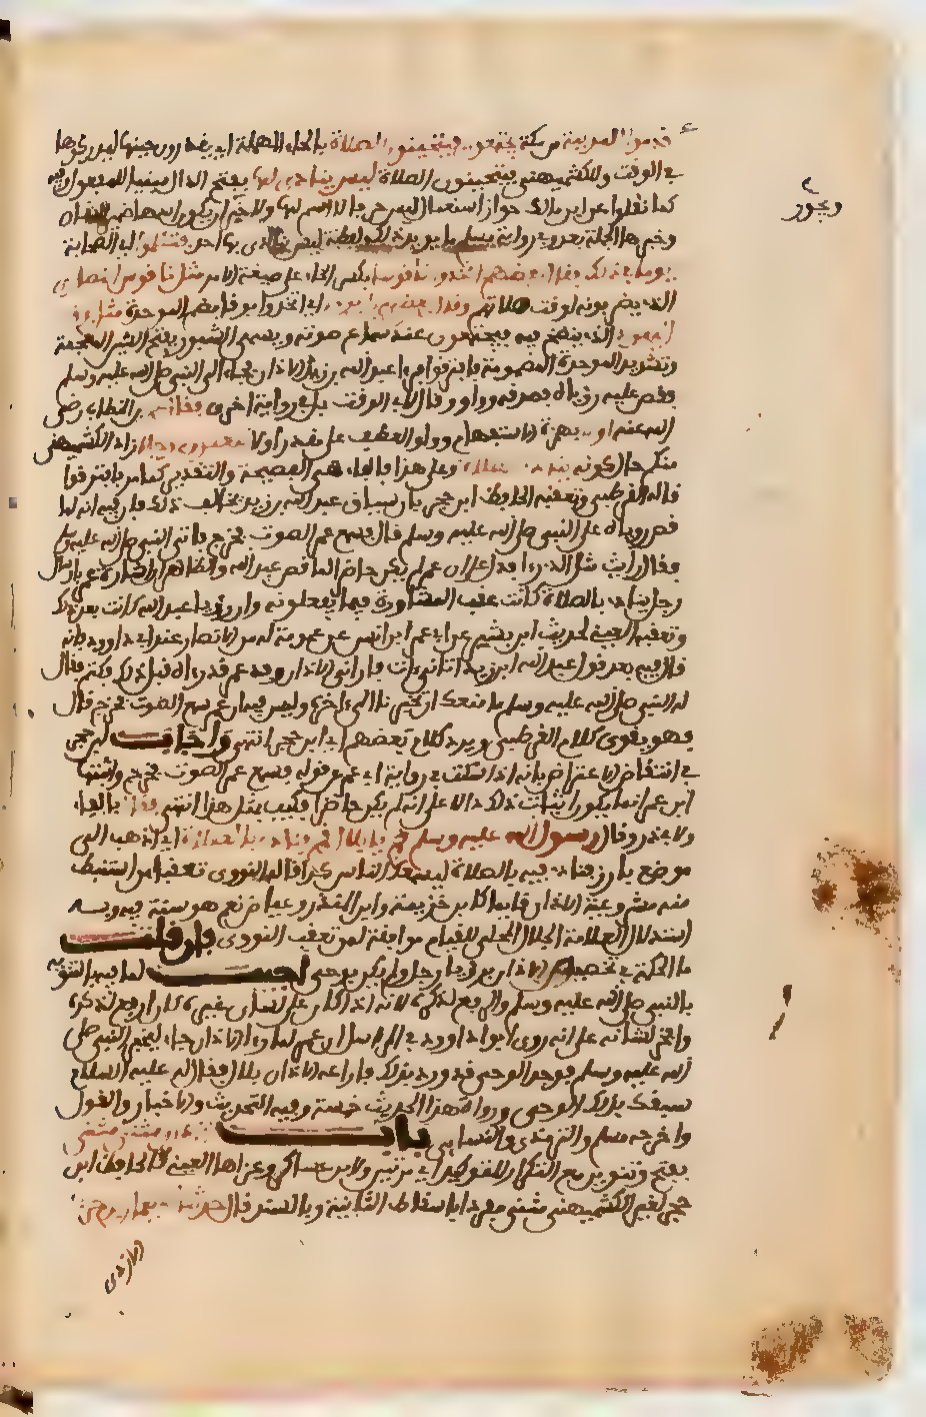 قدموا المدينة من مكة يجتمعون فيتحينون الصلاة بالحاء المهملة اي يقدرون حينها ليدركوها
في الوقت وللكشميهني فيتحينون الصلاة ليس ينادى لها بفتح الدال مبنيا للمفعول فيه
كما نقلوا عن ابن مالك جواز استعمال ليس حرفا لا اسم لها ولا خبر او يكون اسمها ضمير الشان
وخبرها الجملة بعد وفي رواية مسلم ما يؤيد ذلك ولفظه ليس ينادي بها احد فتكلموا اي الصحابة
يوما في ذلك فقال بعضهم اتخذوا ناقوسا بكسر الخاء على صيغة الامر مثل ناقوس النصارى
الذي يضربونه لوقت صلاتهم وقال بعضهم بل بوقا اي اتخذوا بوقا بضم الموحدة مثل بوق
اليهود الذي ينفخ فيه فيجتمعون عند سماع صوته ويسمى الشبور بفتح الشين المعجمة
وتشديد الموحدة المضمومة فافترقوا فراى عبد الله بن زيد الاذان فجاء الى النبي صلى الله عليه وسلم
فقص عليه رؤياه فصدقه وقال عمر بن الخطاب رضي
الله عنه اولا بهمزة الاستفهام وواو العطف على مقدر اولا تبعثون رجلا زاد الكشميهني
منكم حال كونه ينادي بالصلاة وعلى هذا فالفاء هي الفصيحة والتقدير كما مر فافترقوا
قاله القرطبي وتعقبه الحافظ ابن حجر بان سياق عبد الله بن زيد يخالف ذلك فان فيه انه لما
قص رؤياه على النبي صلى الله عليه وسلم قال فسمع عمر الصوت فخرج فاتى النبي صلى الله عليه وسلم
فقال رايت مثل الذي راى فدل على ان عمر لم يكن حاضرا لما قص عبد الله والظاهر ان اشارة عمر بارسال
رجل ينادي بالصلاة كانت عقب المشاورة فيما يفعلونه وان رؤيا عبد الله كانت بعد ذلك
وتعقبه العيني بحديث ابي بشير عن ابي عمير ابن انس عن عمومة له من الانصار عند ابي داوود فانه
قال فيه بعد قول عبد الله ابن زيد اذ اتاني آت فاراني الاذان وقد عمر قد راه قبل ذلك فكتم فقال
له النبي صلى الله عليه وسلم ما منعك ان تخبرنا الى اخره وليس فيه ان عمر سمع الصوت فخرج قال
فهو يقوي كلام القرطبي ويرد كلام بعضهم اي ابن حجر انتهى واجاب ابن حجر
في انتقاض الاعتراض بانه اذا سكت في رواية ابي عمير عن قوله فسمع عمر الصوت فخرج واثبتها
ابن عمر انما يكون اثبات ذلك دالا على انه لم يكن حاضرا فكيف يعترض بمثل هذا انتهى فقال بالفاء
ولابي ذر وقال رسول الله صلى الله عليه وسلم قم يا بلال قم فناد بالصلاة اي اذهب الى
موضع بارز فناد فيه بالصلاة ليسمعك الناس كذا قاله النووي تعقبا من استنبط
منه مشروعية الاذان قائما كابن خزيمة وابن المنذر وعياض نعم هو سنة فيه وبه
استدلال العلامة الجلال المحلي للقيام موافقة لمن تعقب النووي فان قلت
ما الحكمة في تخصيص الاذان برؤيا رجل ولم يكن بوحي اجيب لما فيه من التنويه
بالنبي صلى الله عليه وسلم والرفع لذكره لانه اذا كان على لسان غيره كان ارفع لذكره
وافخر لشانه على انه روى ابو داوود في المراسيل ان عمر لما راى الاذان جاء ليخبر النبي صلى
الله عليه وسلم فوجد الوحي قد ورد بذلك فما راعه الا اذان بلال فقال له عليه السلام
سبقك بذلك الوحي ورواة هذا الحديث خمسة وفيه التحديث والاخبار والقول
واخرجه مسلم والترمذي والنسائي باب الاذان مثنى مثنى
بفتح وتنوين مع التكرار للتوكيد اي مرتين ولابن عساكر وعزاها العيني كالحافظ ابن
حجر لغير الكشميهني مثنى مفردا باسقاط الثانية وبالسند قال حدثنا سليمان بن حرب
ويجوز
الازدي